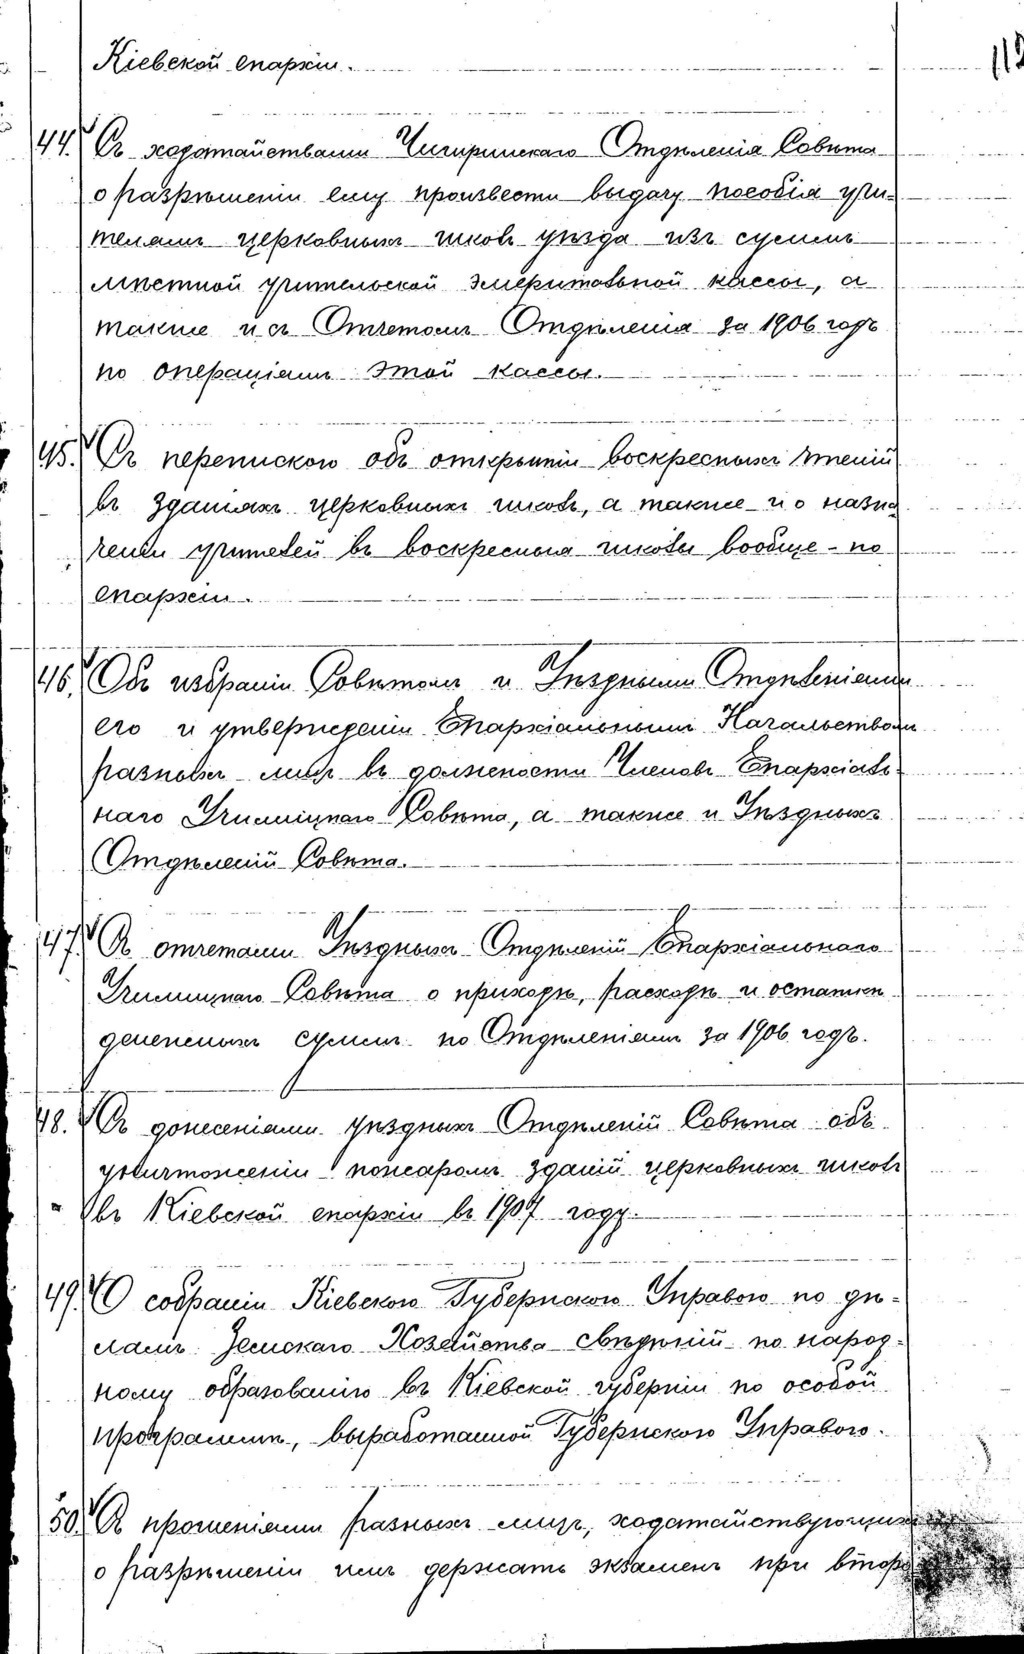 112
Кіевской епархіи.
44. Съ ходатайствами Чигиринскаго Отдѣленія Совѣта
о разрѣшеніи ему произвести выдачу пособія учи=
телямъ церковныхъ школъ уѣзда изъ суммъ
мѣстной учительской эмеритальной кассы, а
также и съ Отчетомъ Отдѣленія за 1906 годъ
по операціямъ этой кассы.
45. Съ перепискою объ открытіи воскресныхъ чтеній
въ зданіяхъ церковныхъ школъ, а также и о назна
ченіи учителей въ воскресныя школы вообще - по
епархіи.
46. Объ избраніи Совѣтомъ и Уѣздными Отдѣленіями
его и утвержденіи Епархіальнымъ Начальствомъ
разныхъ лицъ въ должности Членовъ Епархіаль-
наго Училищнаго Совѣта, а также и Уѣздныхъ
Отдѣленій Совѣта.
47. Съ отчетами Уѣздныхъ Отдѣленій Епархіальнаго
Училищнаго Совѣта о приходѣ, расходѣ и остаткѣ
денежныхъ суммъ по Отдѣленіямъ за 1906 годъ.
48. Съ донесеніями уѣздныхъ Отдѣленій Совѣта объ
уничтоженіи пожаромъ зданій церковныхъ школъ
въ Кіевской епархіи въ 1907 году.
49. О собраніи Кіевскою Губернскою Управою по дѣ=
ламъ Земскаго Хозяйства свѣдѣній по народ=
ному образованію въ Кіевской губерніи по особой
программѣ, выработанной Губернскою Управою.
50. Съ прошеніями разныхъ лицъ, ходатайствующихъ
о разрѣшеніи имъ держать экзаменъ при второ